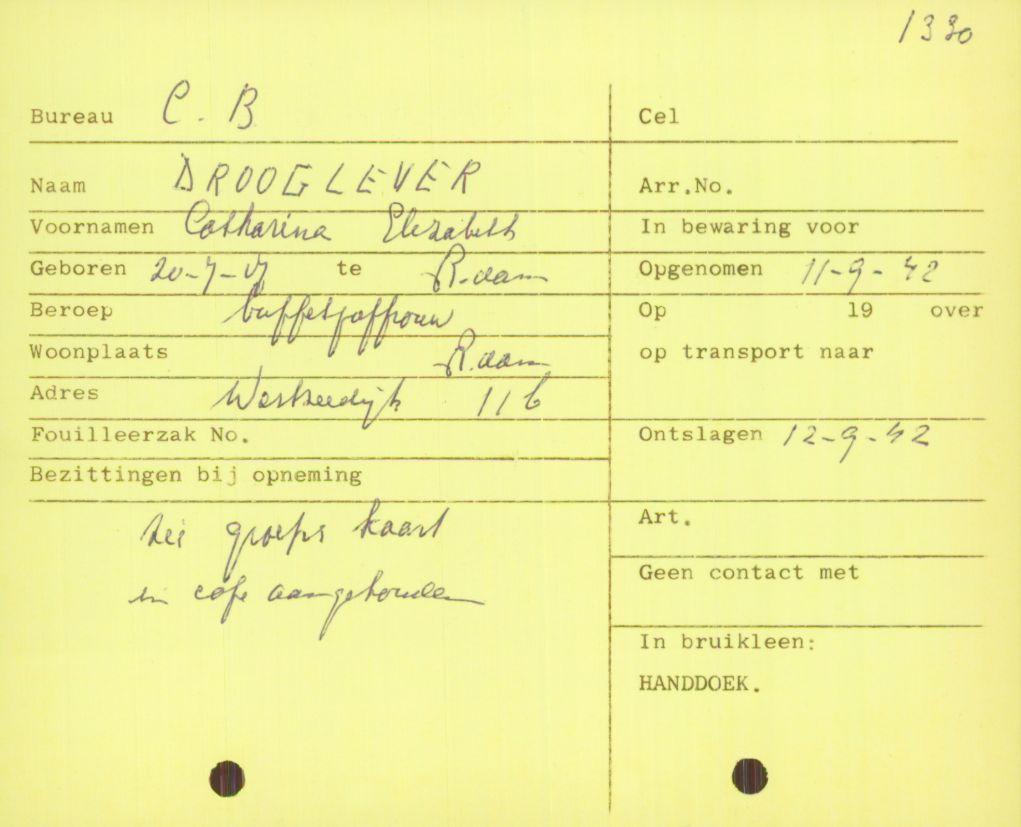 1330
Bureau C. B
Cel
Naam DROOGLEVER
Arr.No.
Voornamen Catharina Elizabeth
In bewaring voor
Geboren 20-7-17 te R.dam
Opgenomen 11-9-42
Beroep buffetjuffrouw
Op 19 over
Woonplaats R.dam
op transport naar
Adres Westzeedijk 116
Fouilleerzak No.
Ontslagen 12-9-42
Bezittingen bij opneming
zie groeps kaart
in café aangehouden
Art.
Geen contact met
In bruikleen:
HANDDOEK.